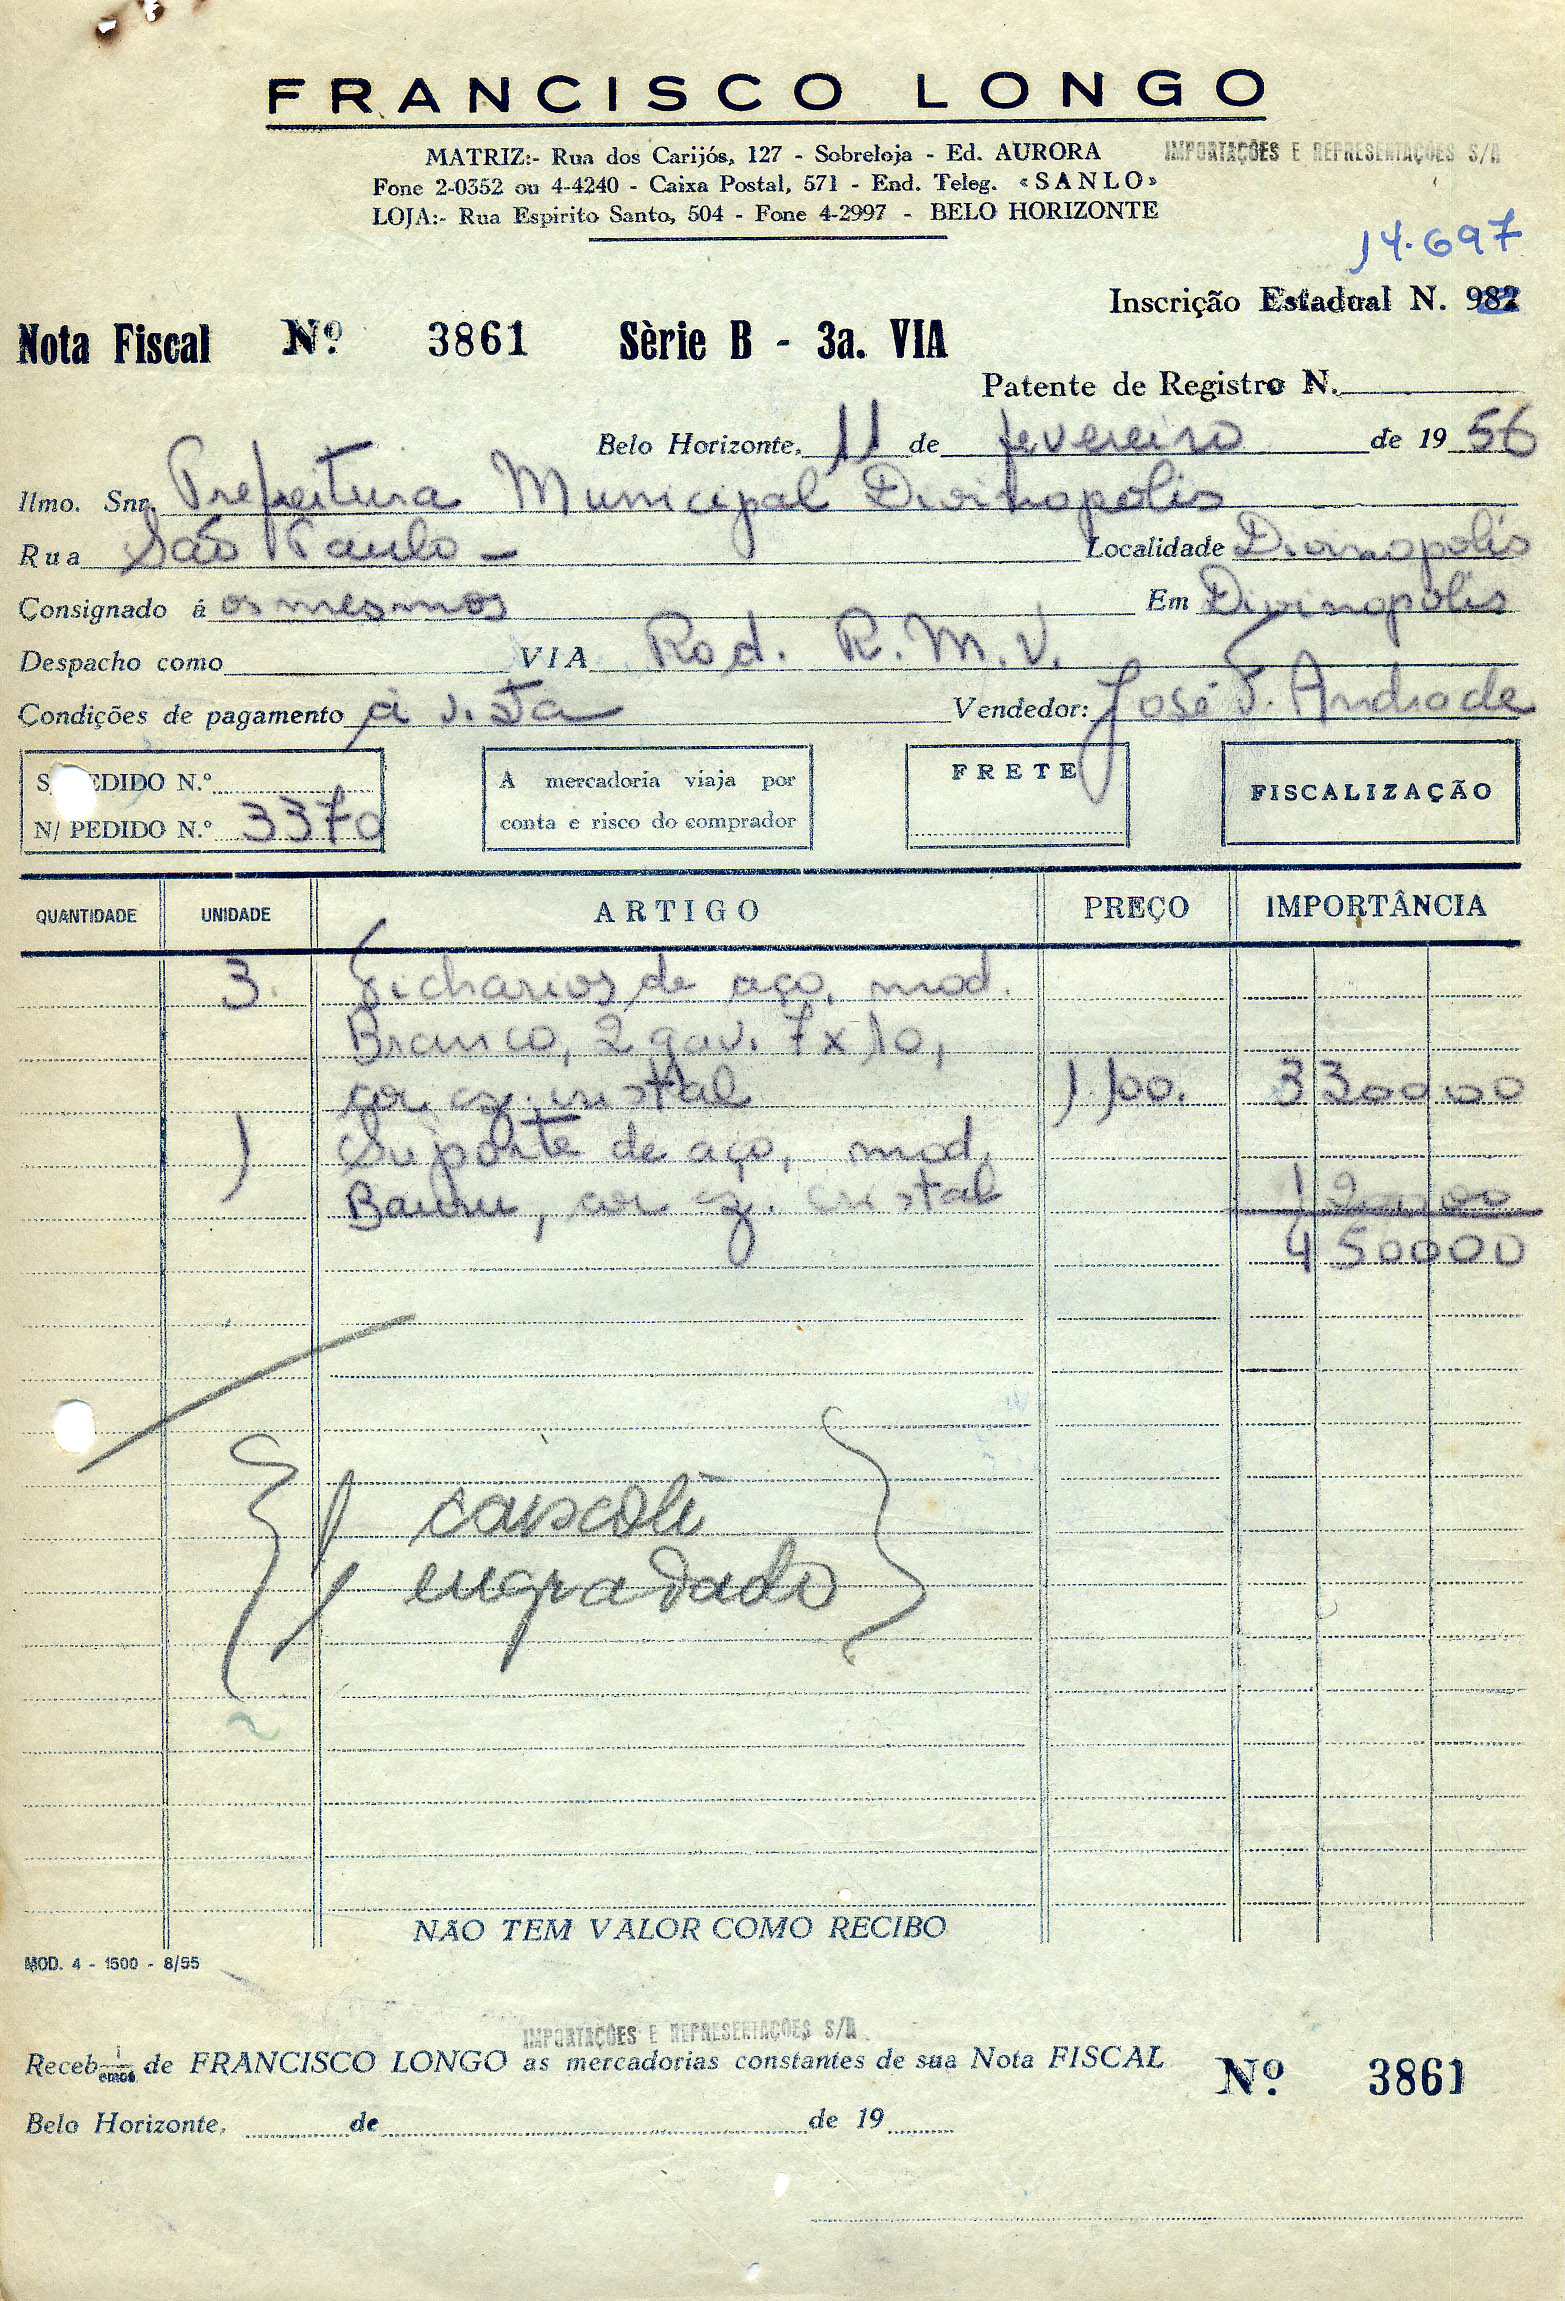 FRANCISCO LONGO
IMPORTAÇÕES E REPRESENTAÇÕES S/A
MATRIZ:- Rua dos Carijós, 127 - Sobreloja - Ed. AURORA
Fone 2-0352 ou 4-4240 - Caixa Postal, 571 - End. Teleg. «SANLO»
LOJA:- Rua Espirito Santo, 504 - Fone 4-2997 - BELO HORIZONTE
14.697
Inscrição Estadual N. 982
Nota Fiscal Nº 3861 Sèrie B - 3a. VIA
Patente de Registro N.
Belo Horizonte, 11 de fevereiro de 1956
Ilmo. Snr. Prefeitura Municipal Divinopolis
Rua São Paulo - Localidade Divinopolis
Consignado á os mesmos Em Divinopolis
Despacho como VIA Rod. R. M. V.
Condições de pagamento à vista Vendedor: José T. Andrade
S/ PEDIDO N.º
N/ PEDIDO N.º 3370
A mercadoria viaja por
conta e risco do comprador
FRETE
FISCALIZAÇÃO
QUANTIDADE UNIDADE ARTIGO PREÇO IMPORTÂNCIA
3. Ficharios de aço, mod.
Branco, 2 gav. 7x10,
cor cz. cristal 1.100. 3 300 00
1 Suporte de aço, mod.
Bauru, cor cz. cristal 1 200 00
4 500 00
engradado
NÃO TEM VALOR COMO RECIBO
MOD. 4 - 1500 - 8/55
IMPORTAÇÕES E REPRESENTAÇÕES S/A
Receb i/emos de FRANCISCO LONGO as mercadorias constantes de sua Nota FISCAL Nº 3861
Belo Horizonte, de de 19